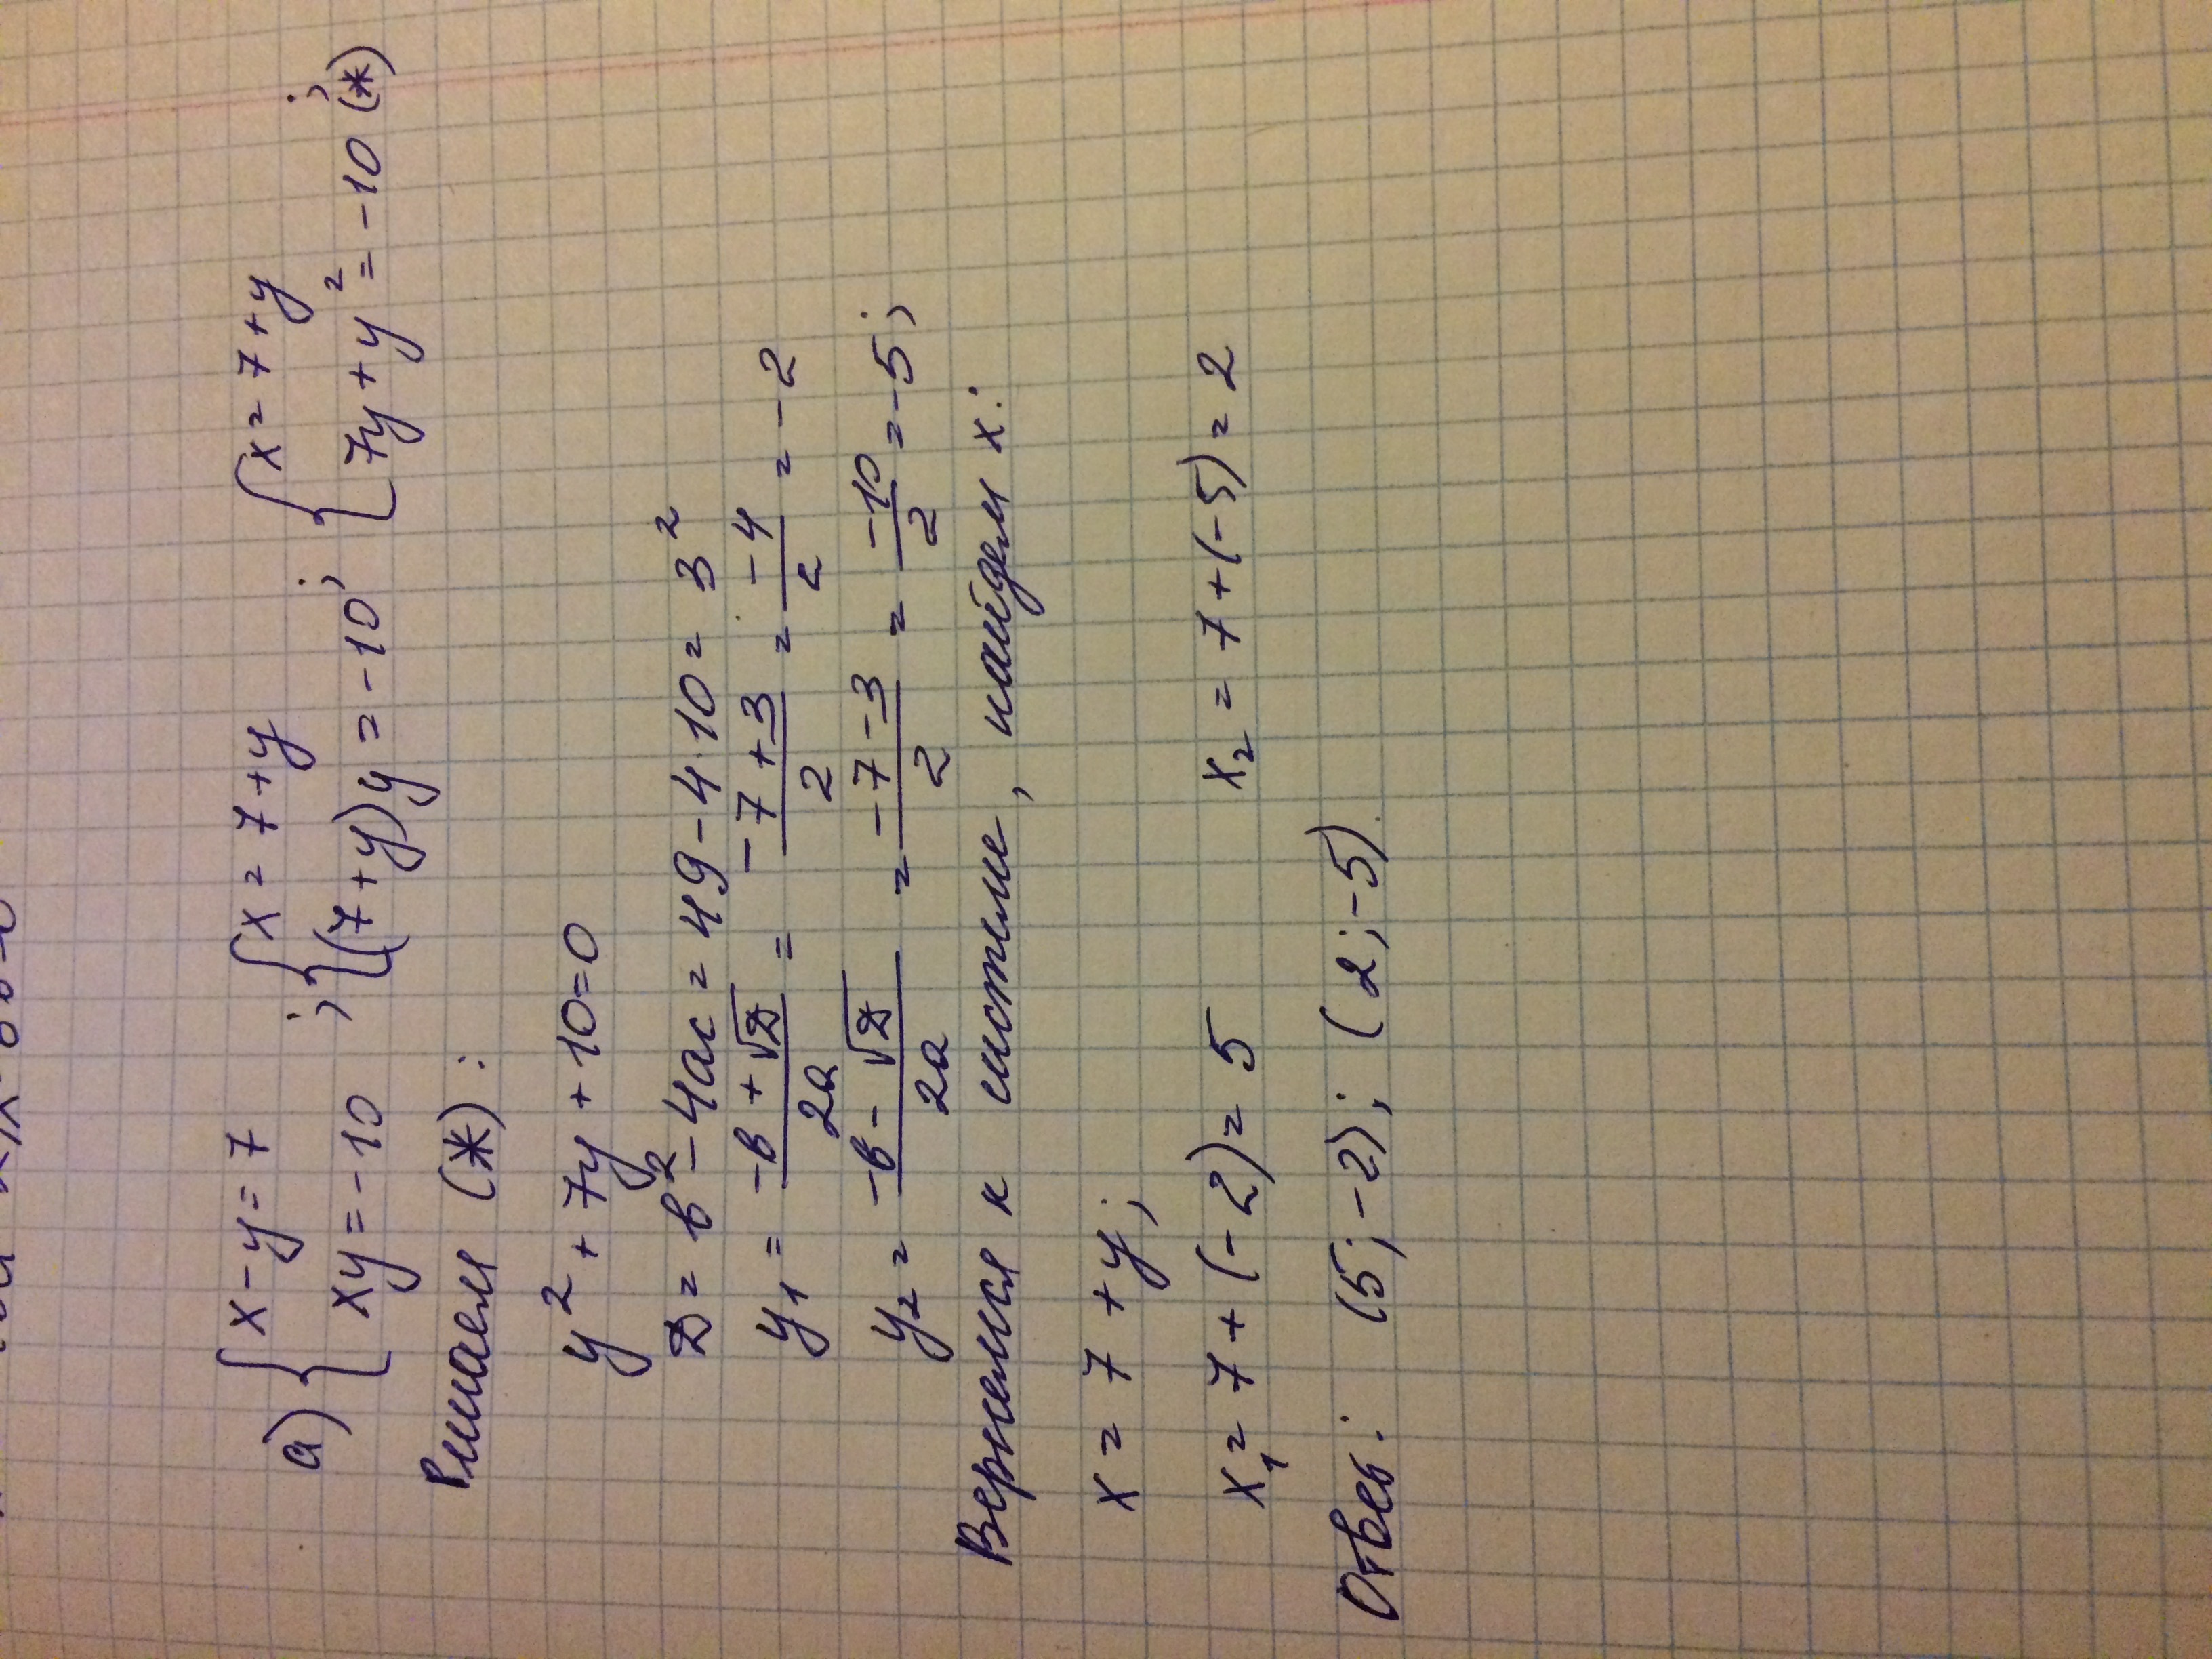 а) { x - y = 7 ; { x = 7 + y ; { x = 7 + y ;
xy = -10 (7 + y) y = -10 7y + y² = -10 (*)
Решаем (*) :
y² + 7y + 10 = 0
D = в² - 4ac = 49 - 4·10 = 3²
y₁ = (-в + √D)/2a = (-7 + 3)/2 = -4/2 = -2
y₂ = (-в - √D)/2a = (-7 - 3)/2 = -10/2 = -5;
Вернемся к системе, найдем x:
x = 7 + y;
x₁ = 7 + (-2) = 5 x₂ = 7 + (-5) = 2
Ответ: (5; -2); (2; -5).